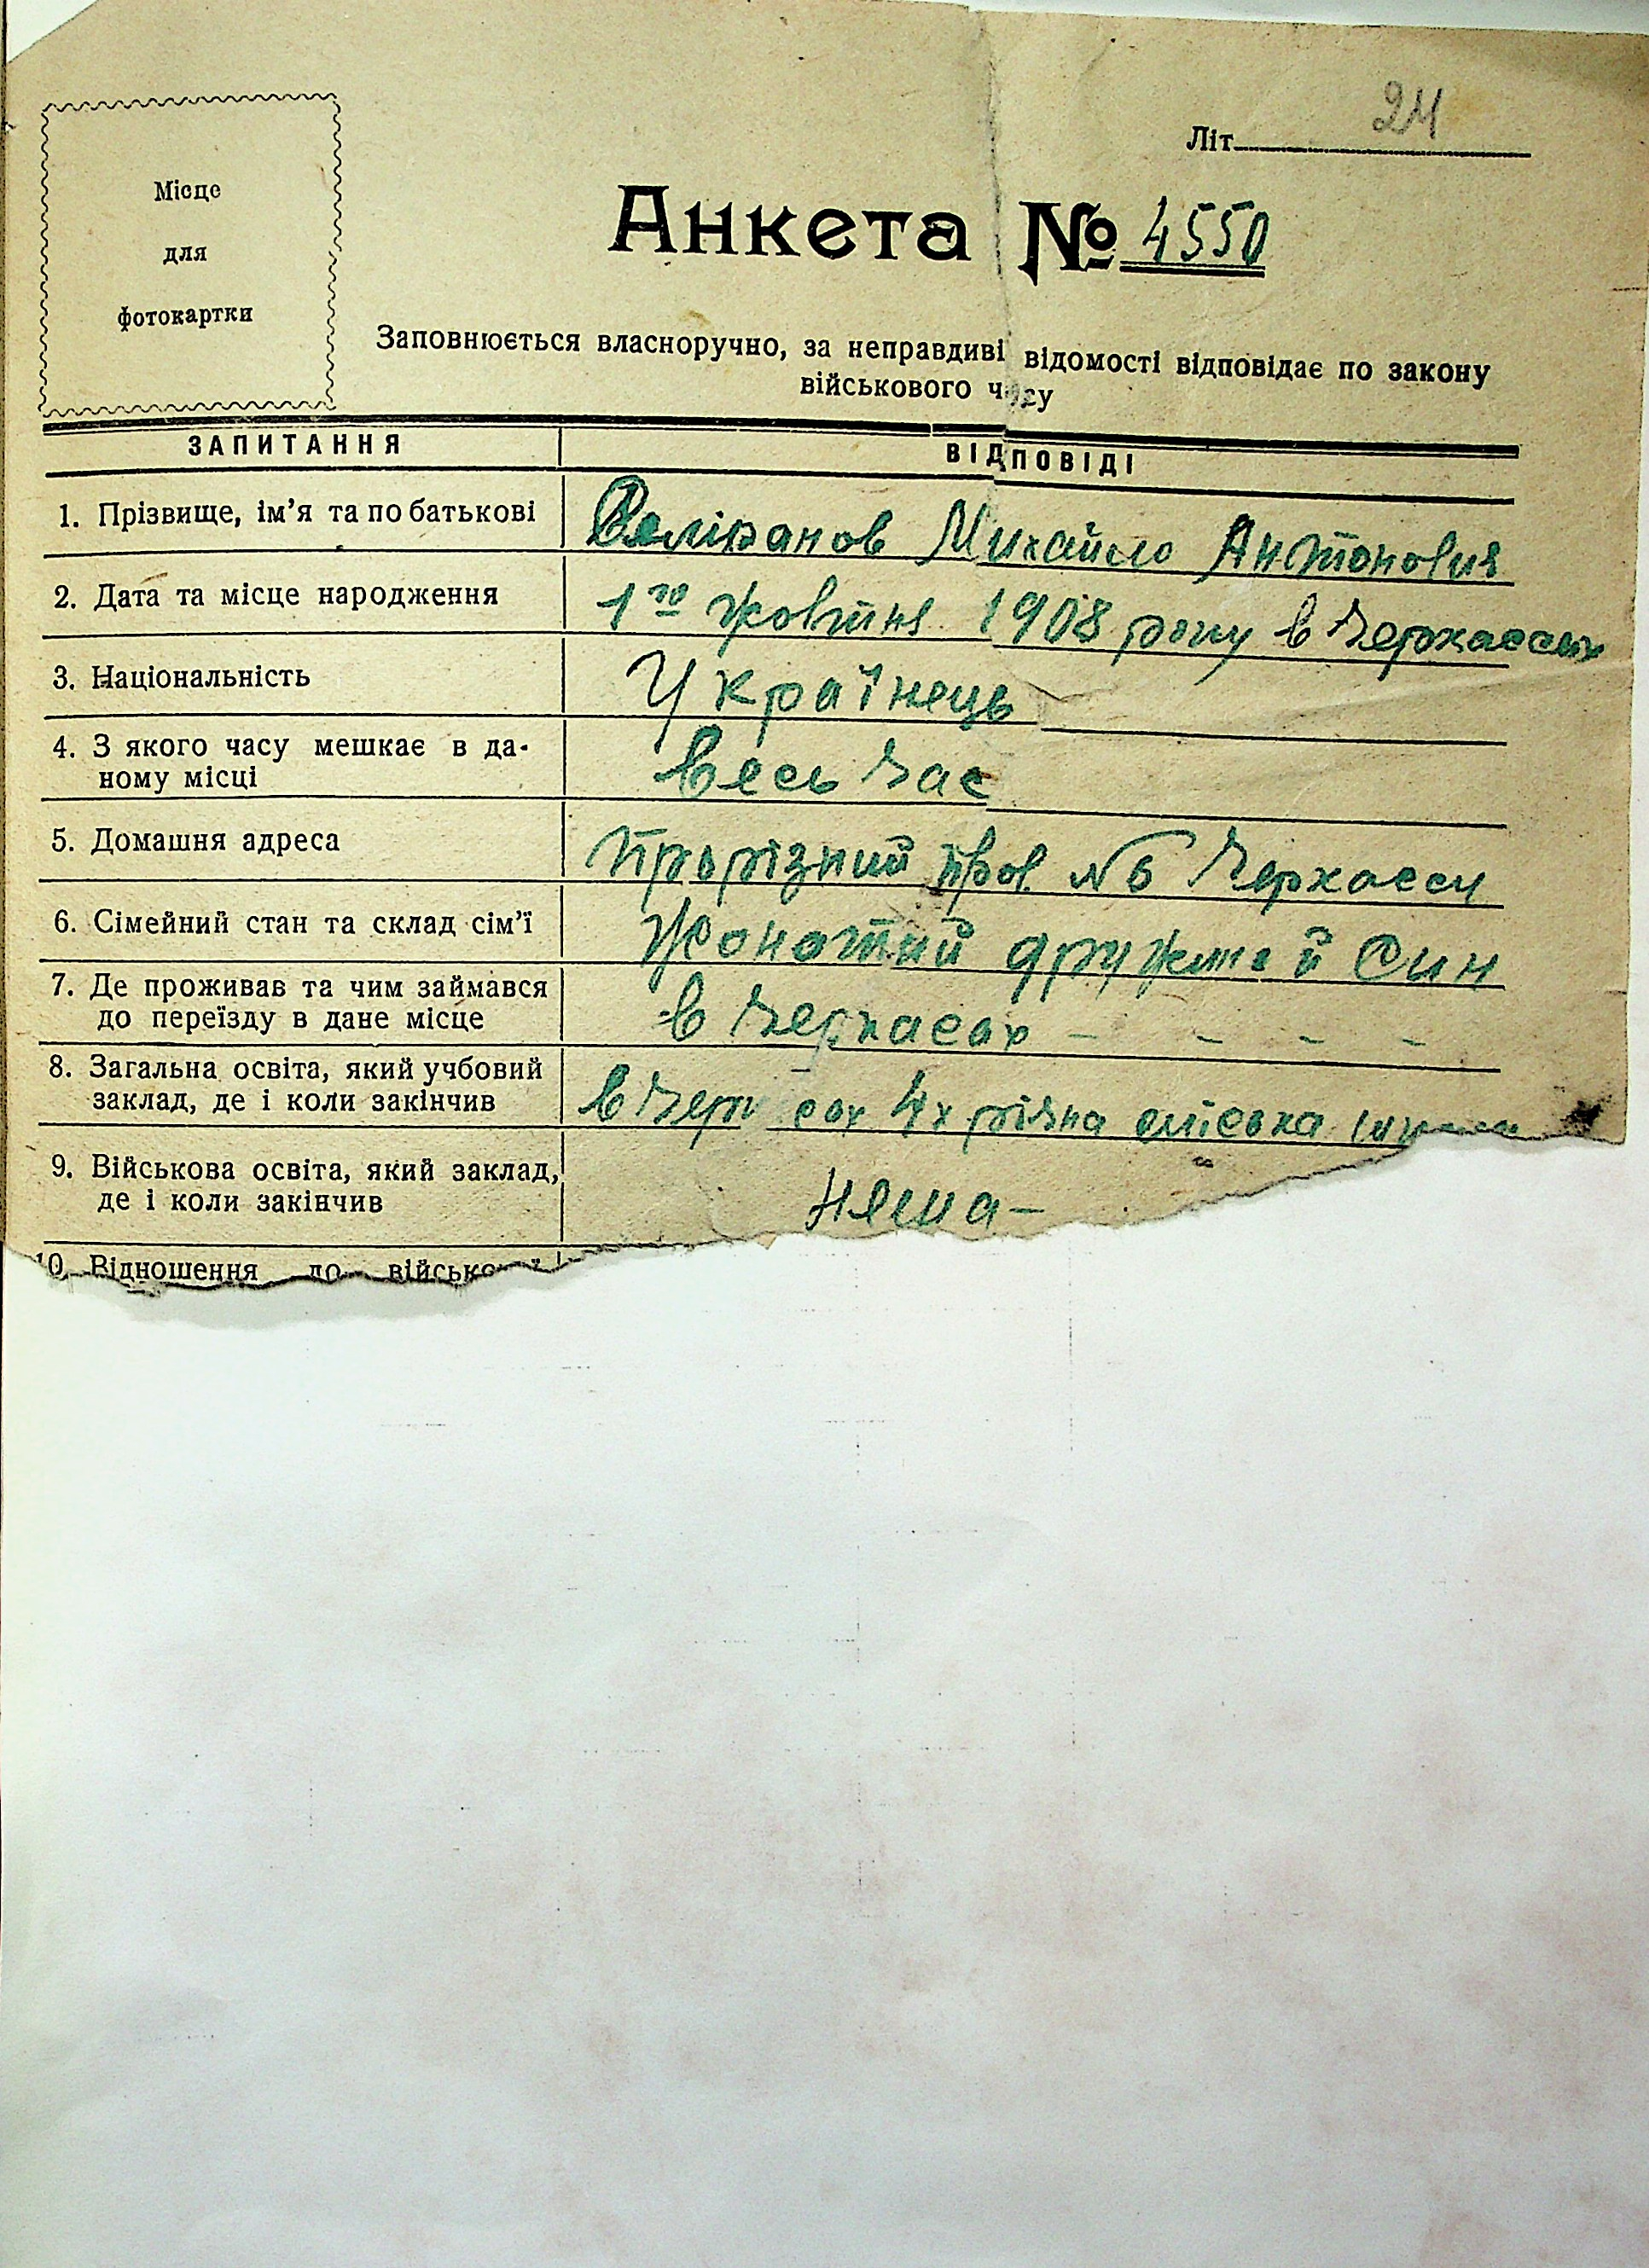 Літ. 24
Місце
для
фотокартки
Анкета № 4550
Заповнюється власноручно, за неправдиві відомості відповідає по закону
військового часу
ЗАПИТАННЯ ВІДПОВІДІ
1. Прізвище, ім'я та по батькові Веліканов Михайло Антонович
2. Дата та місце народження 1го жовтня 1908 року в Черкассах
3. Національність Українець
4. З якого часу мешкає в да-
ному місці весь час
5. Домашня адреса Прорізний пров. № 6 Черкасси
6. Сімейний стан та склад сім'ї Жонатий дружина й син
7. Де проживав та чим займався
до переїзду в дане місце в Черкасах - - - -
8. Загальна освіта, який учбовий
заклад, де і коли закінчив в Чер сах 4х річна міська
9. Військова освіта, який заклад,
де і коли закінчив няма -
10. Відношення до військової